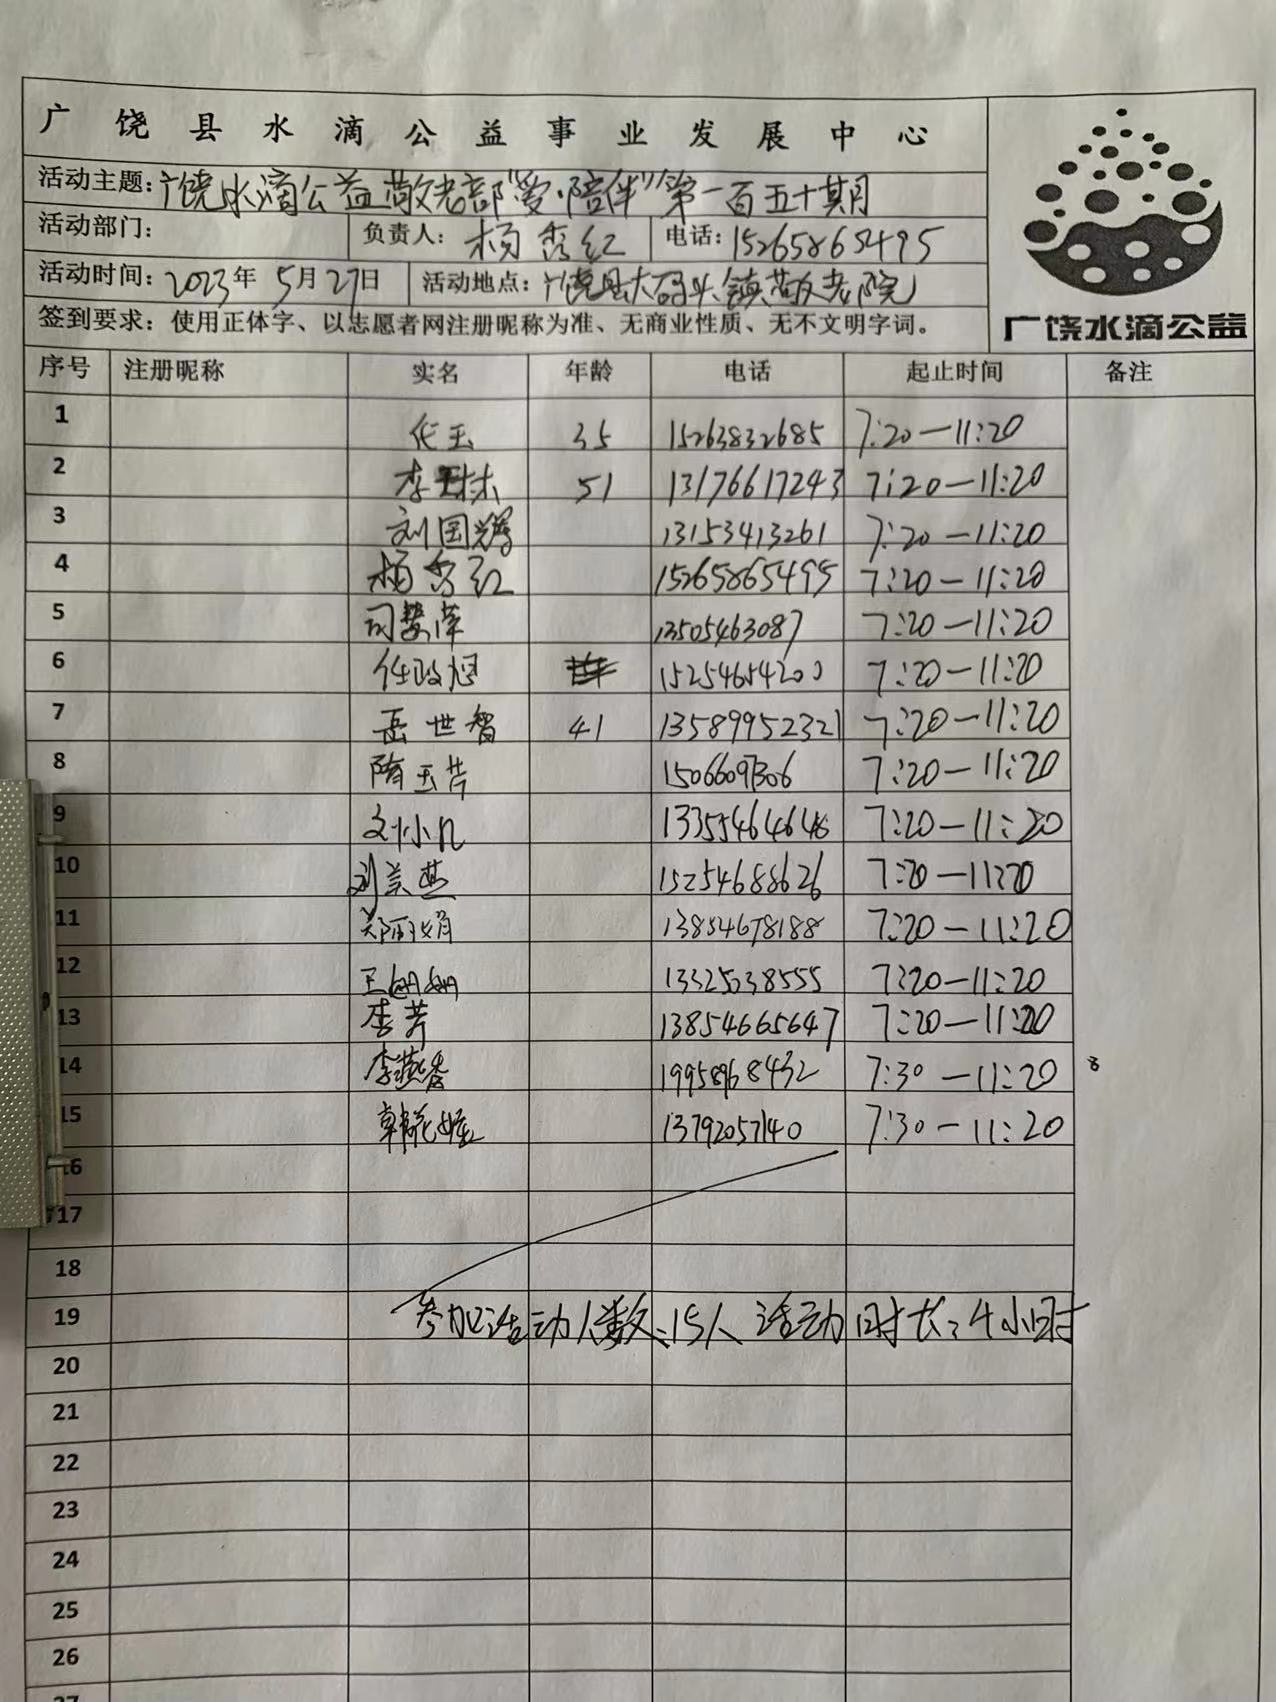 广饶县水滴公益事业发展中心
活动主题：广饶水滴公益敬老部"爱·陪伴"第一百五十期月
活动部门： 负责人：杨秀红 电话：15265865495
活动时间：2023年5月27日 活动地点：广饶县大码头镇敬老院
签到要求：使用正体字、以志愿者网注册昵称为准、无商业性质、无不文明字词。
广饶水滴公益
序号 注册昵称 实名 年龄 电话 起止时间 备注
1 35 15263832685 7:20—11:20
2 李 51 13176617243 7:20—11:20
3 刘国辉 13153413261 7:20—11:20
4 杨秀红 15265865495 7:20—11:20
5 13505463087 7:20—11:20
6 15254654200 7:20—11:20
7 岳世智 41 13589952321 7:20—11:20
8 隋玉芹 15066097306 7:20—11:20
9 刘小凡 13355464646 7:20—11:20
10 刘美燕 15254688626 7:20—11:20
11 郑丽娟 13854678188 7:20—11:20
12 王姗姗 13325038555 7:20—11:20
13 李芳 13854665647 7:20—11:20
14 李燕香 19958968432 7:30—11:20 8
15 13792057140 7:30—11:20
16
17
18
19 参加活动人数：15人 活动时长：4小时
20
21
22
23
24
25
26
27